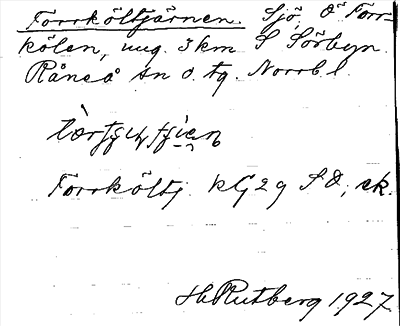 Forrköltjärnen. Sjö, Ö Forr-
kölen, ung. 3 km S Sörbyn.
Råneå sn o. tg. Norrb. l.
Forrköltj. kG2g SO, ek.
H Rutberg 1927.